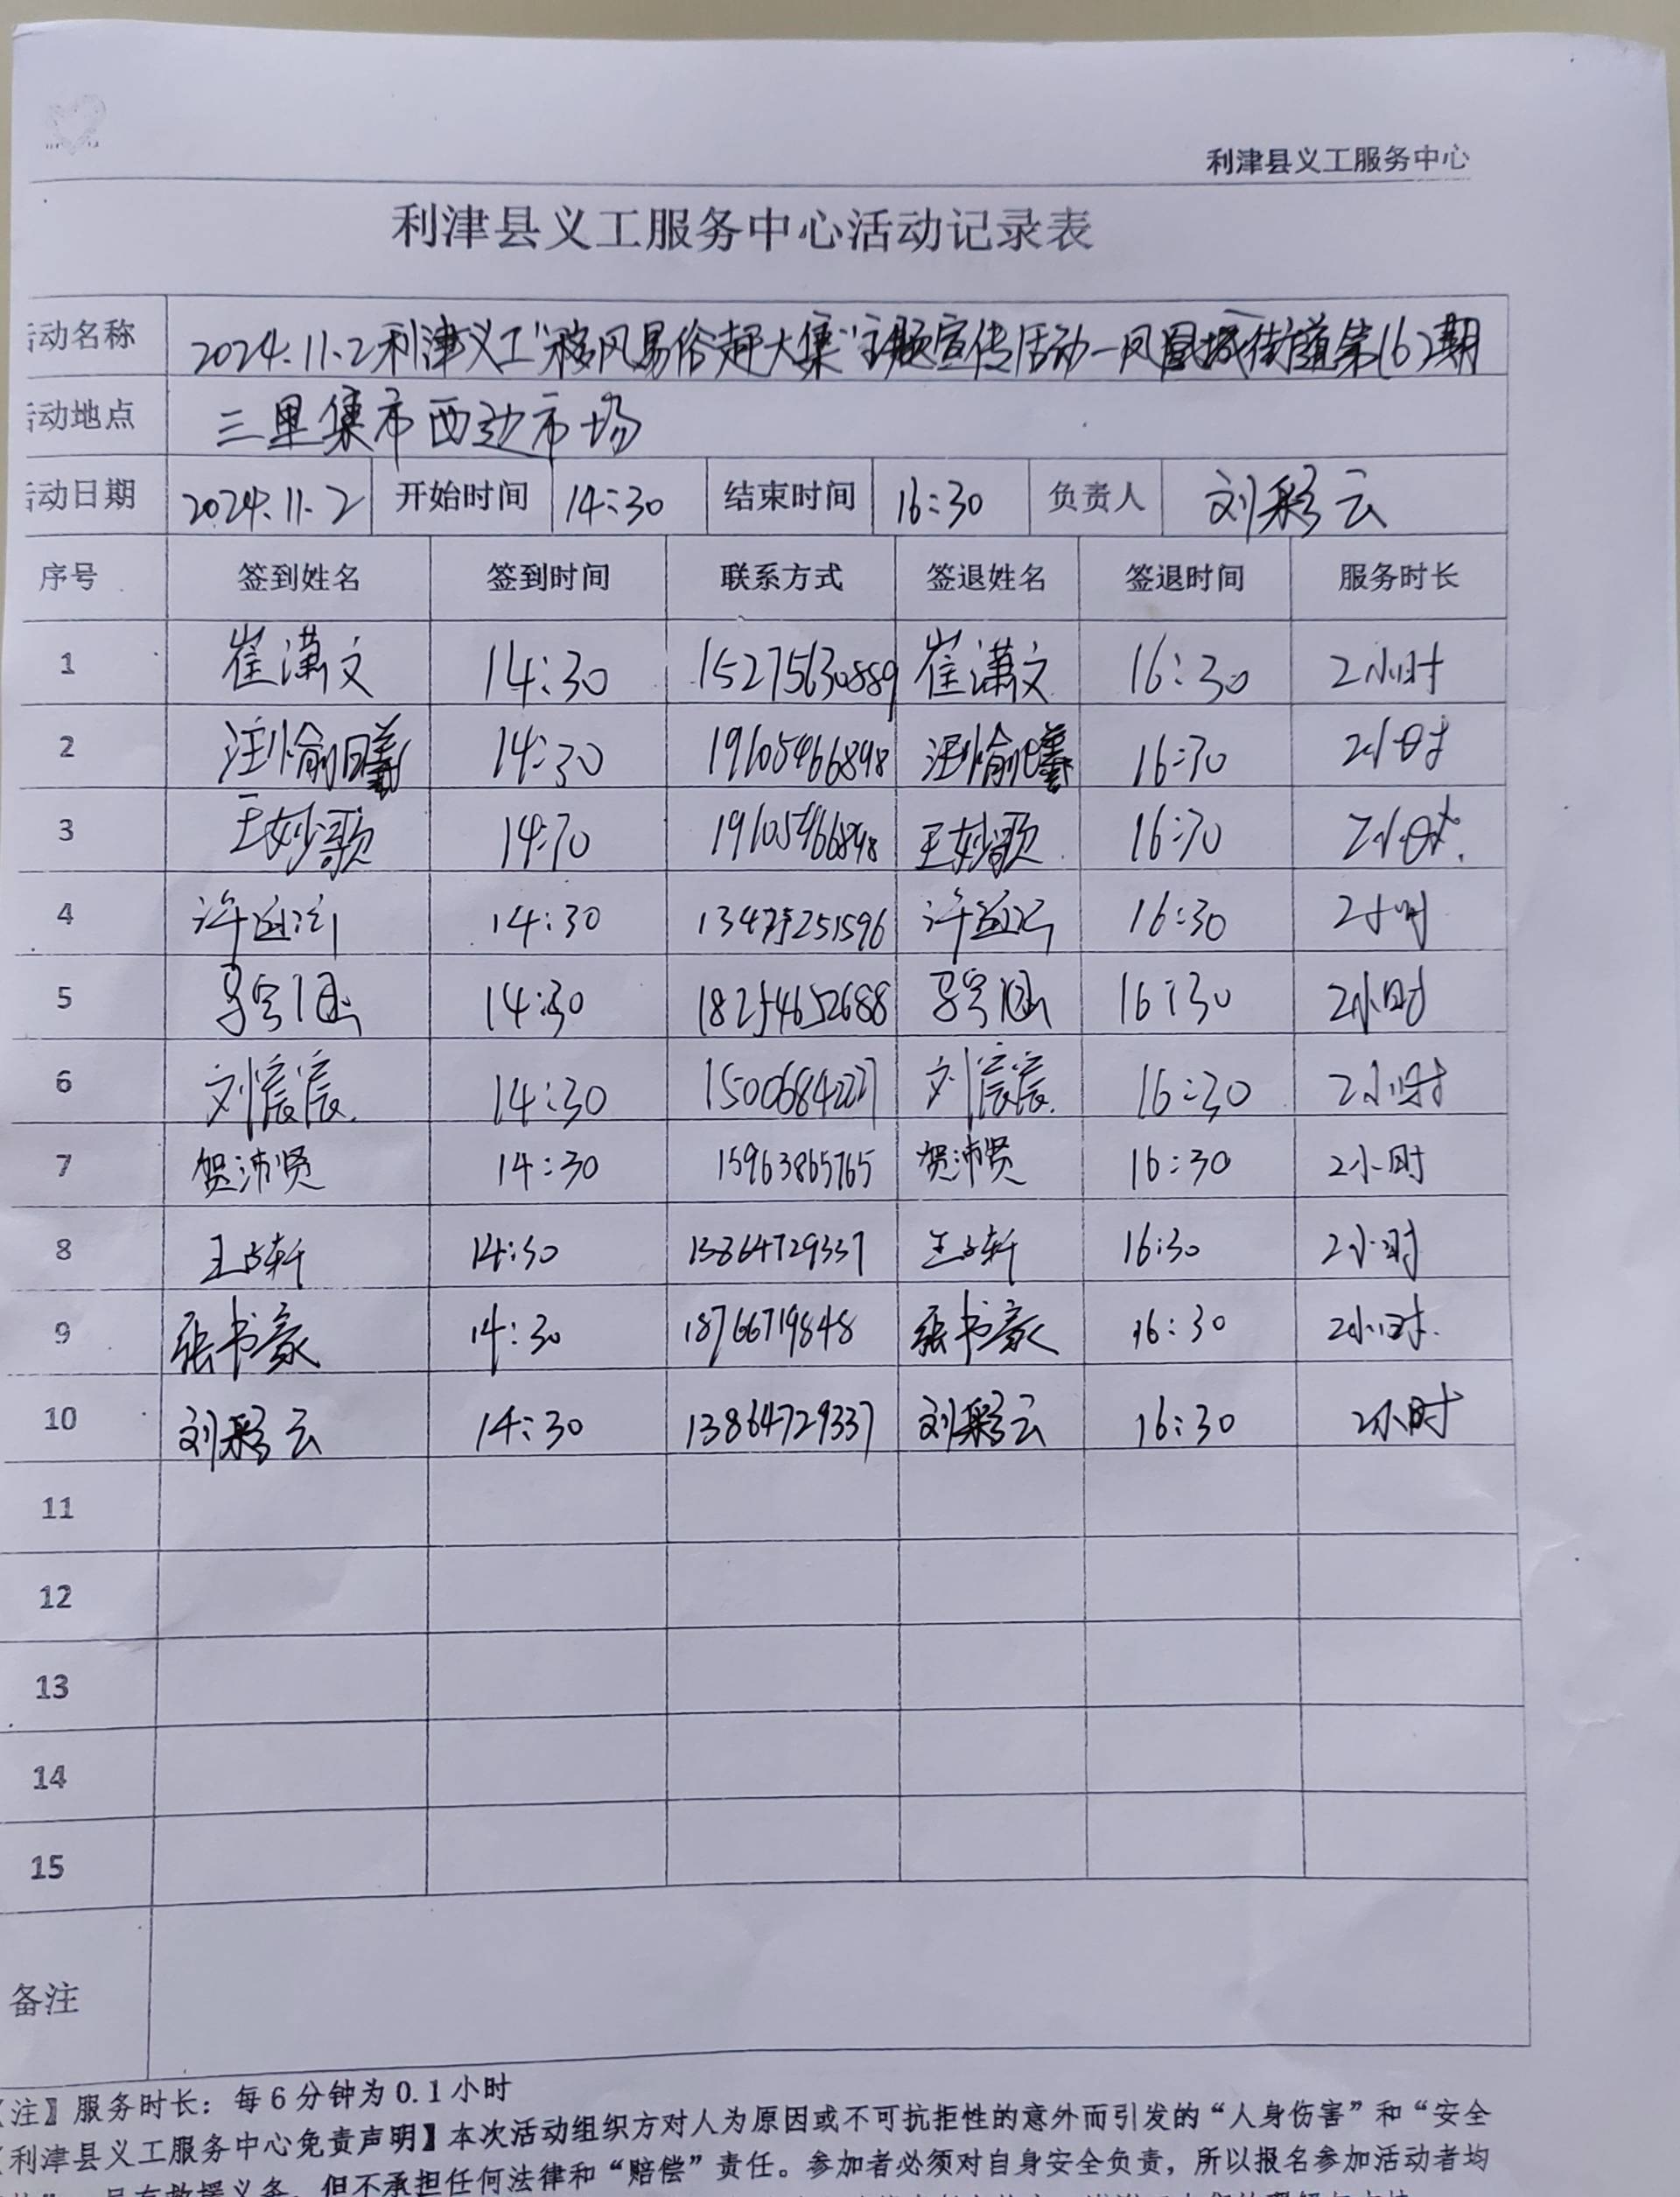 利津县义工服务中心
利津县义工服务中心活动记录表
活动名称 2024.11.2利津义工"移风易俗赶大集"主题宣传活动—凤凰城街道第162期
活动地点 三里集市西边市场
活动日期 2024.11.2 开始时间 14:30 结束时间 16:30 负责人 刘彩云
序号 签到姓名 签到时间 联系方式 签退姓名 签退时间 服务时长
1 崔潇文 14:30 15275630889 崔潇文 16:30 2小时
2 汪愉曦 14:30 19605466898 汪愉曦 16:30 2小时
3 王妙歌 14:30 19605466898 王妙歌 16:30 2小时.
4 14:30 13475251596 16:30 2小时
5 14:30 18254652688 16:30 2小时
6 刘宸宸 14:30 15006842227 刘宸宸 16:30 2小时
7 贺沛贤 14:30 15963865765 贺沛贤 16:30 2小时
8 14:30 13864729337 16:30 2小时
9 张书豪 14:30 18766719848 张书豪 16:30 2小时.
10 刘彩云 14:30 13864729337 刘彩云 16:30 2小时
11
12
13
14
15
备注
注】服务时长：每6分钟为0.1小时
利津县义工服务中心免责声明】本次活动组织方对人为原因或不可抗拒性的意外而引发的“人身伤害”和“安全
但不承担任何法律和“赔偿”责任。参加者必须对自身安全负责，所以报名参加活动者均